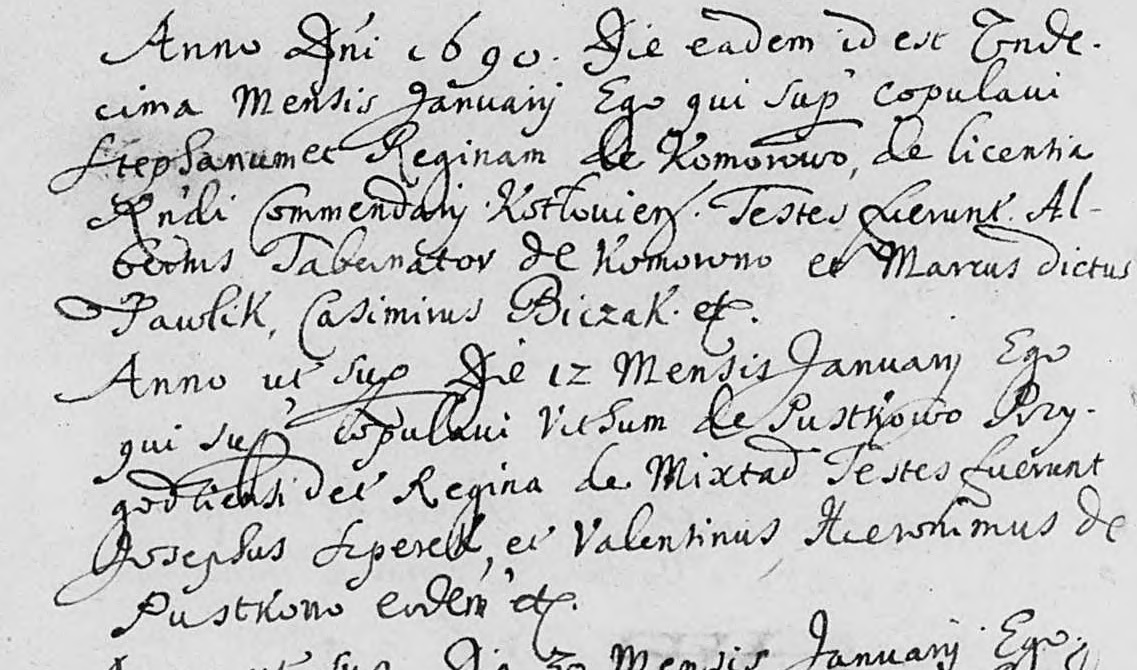 Anno Dni 1690. Die eadem id est Unde-
cima Mensis Januarij Ego qui sup copulavi
Stephanum et Reginam de Komorowo, de licentia
Rndi Commendarij Kotłovien. Testes fuerunt. Al-
bertus Tabernator de Komorowo et Marcus dictus
Pawlik, Casimirus Biczak. etc.
Anno ut sup Die 12 Mensis Januarij Ego
qui sup copulavi Vithum de Pustkowo Przy-
godliensi et Regina de Mixtad Testes fuerunt
Josephus et Valentinus, Hieronimus de
Pustkowo eodem etc.
Mensis Januarij Ego